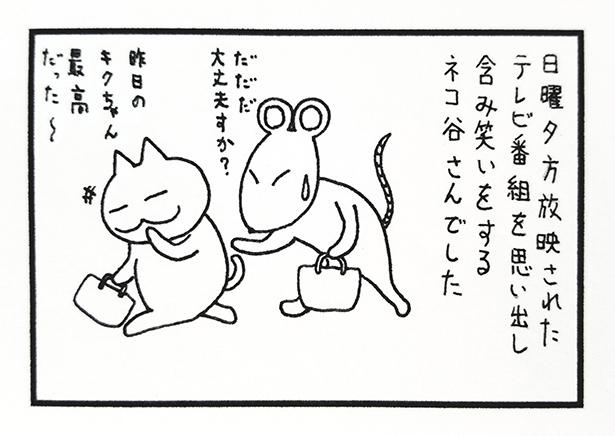 日曜夕方放映された
テレビ番組を思い出し
含み笑いをする
ネコ谷さんでした
だだだ
大丈夫すか?
昨日の
キクちゃん
最高
だった〜